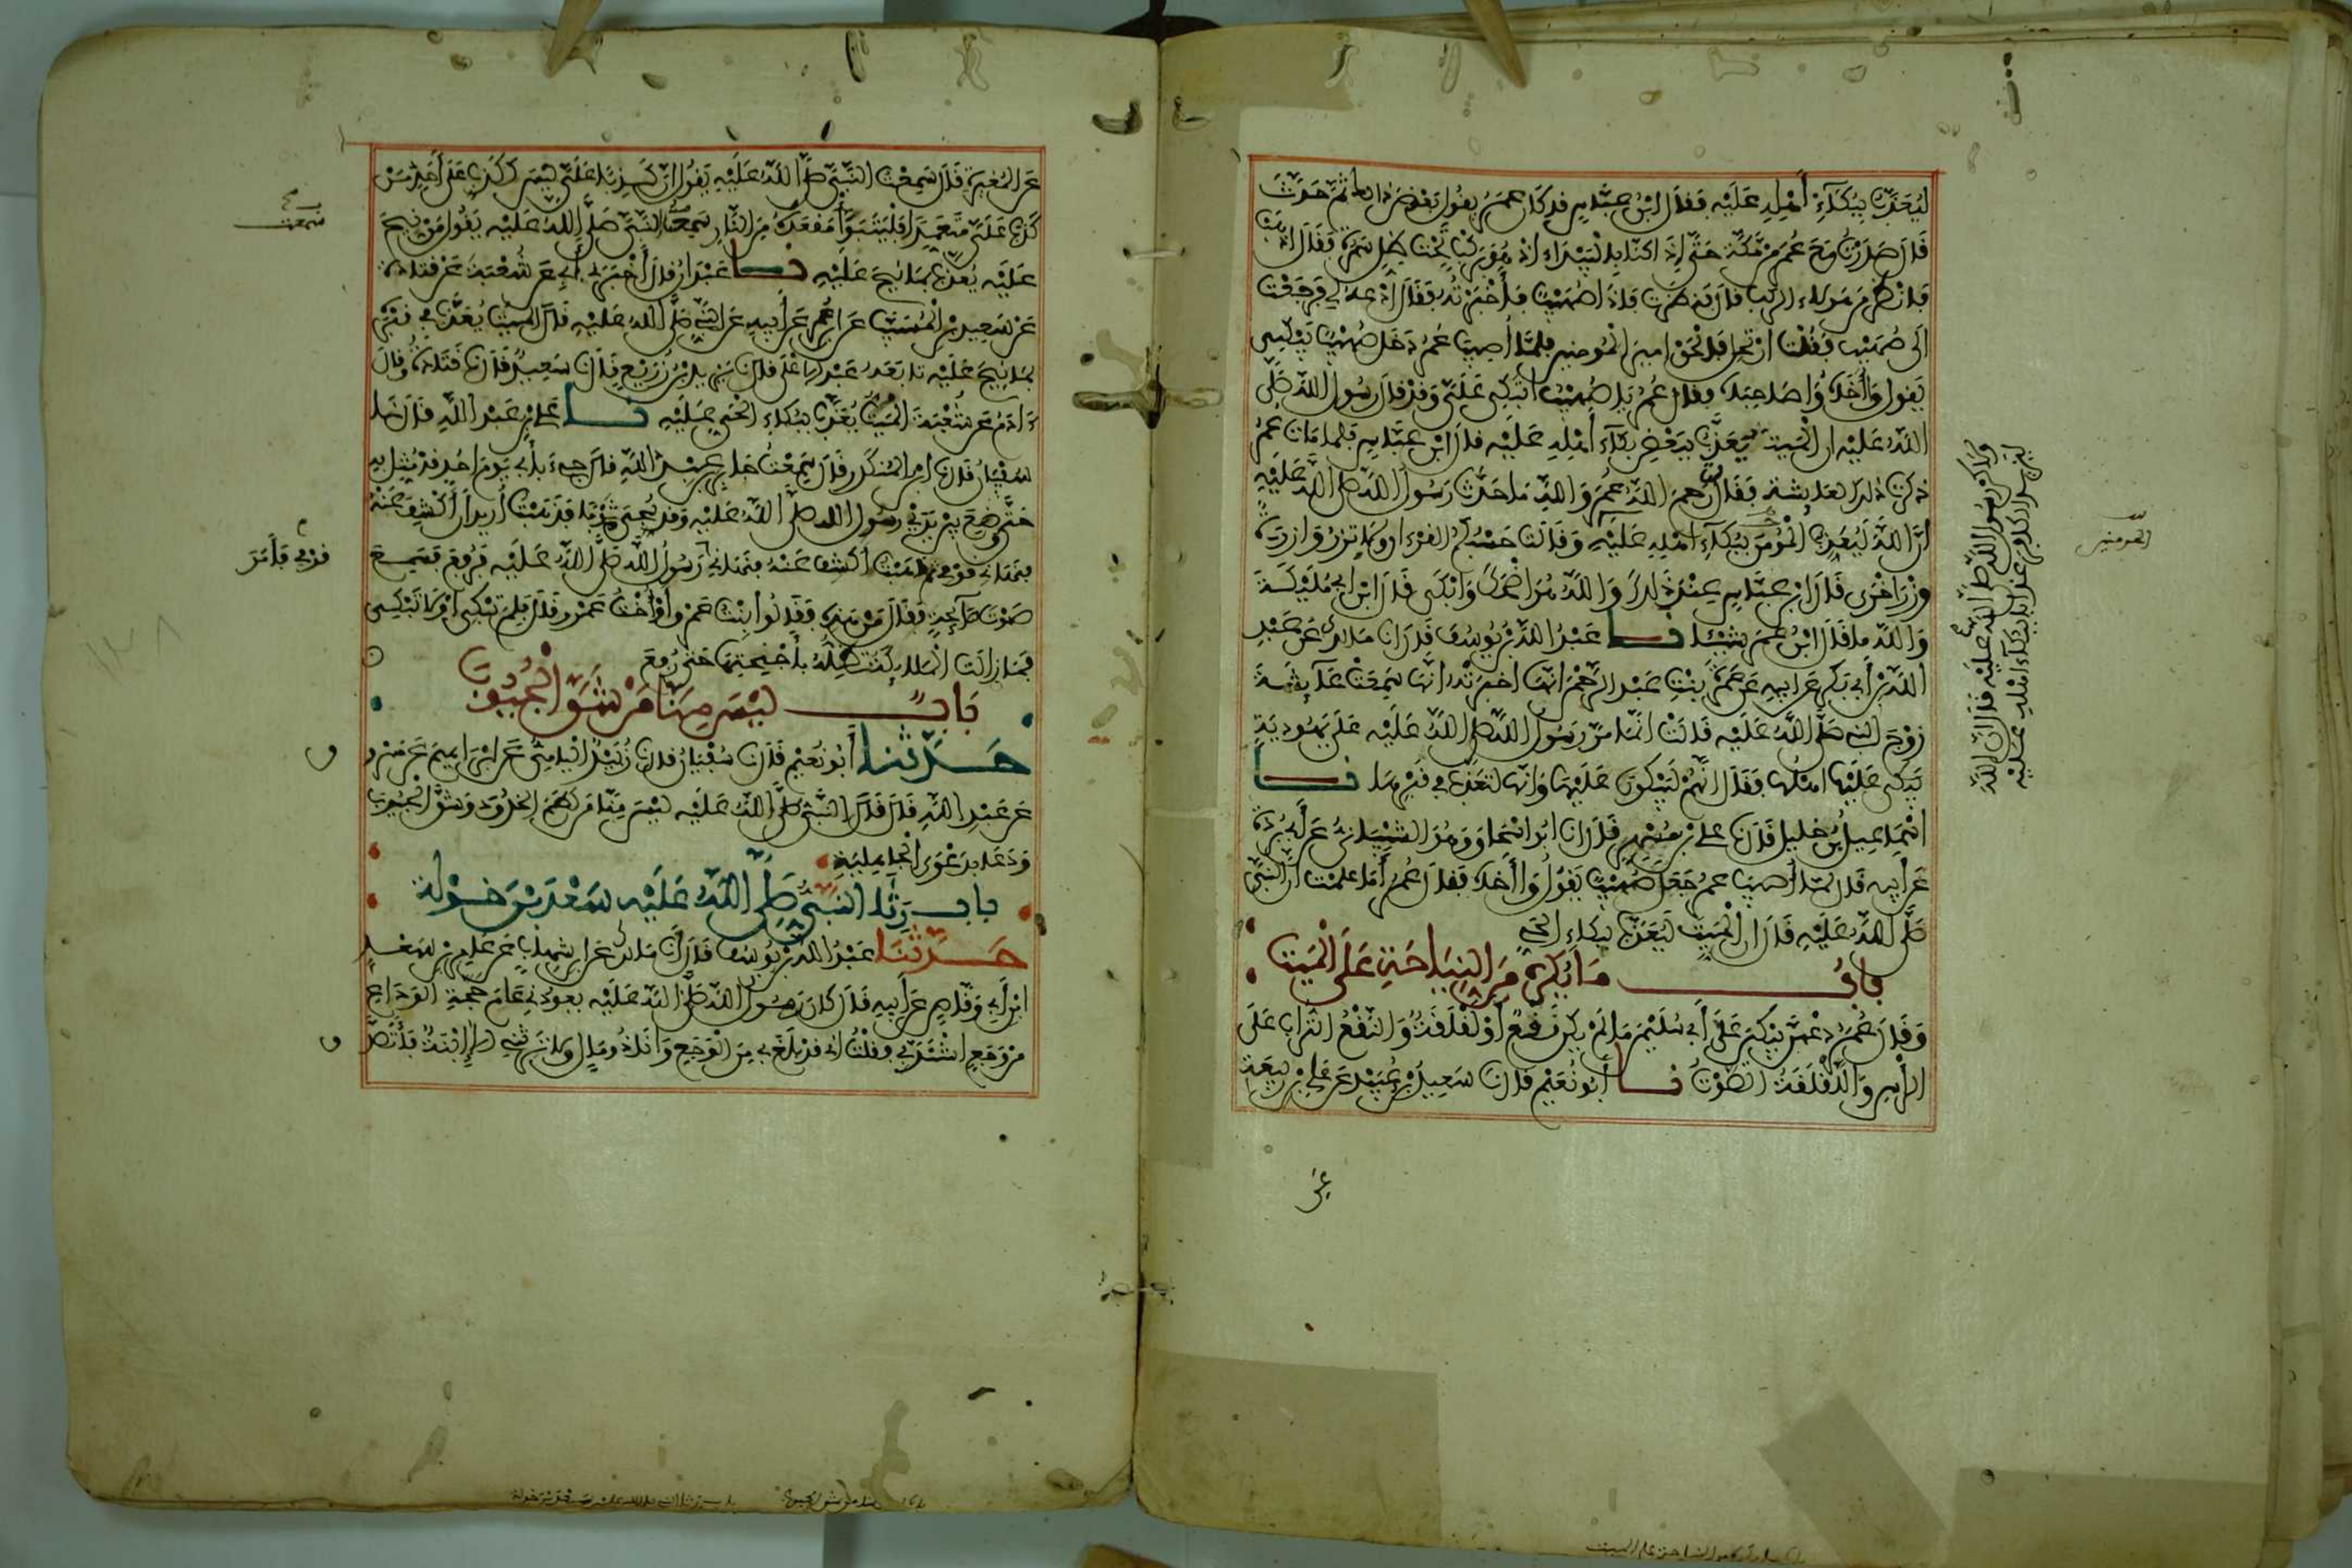 ليعذب ببكاء أهله عليه فقال ابن عباس قد كان عمر يقول بعض ذلك ثم حدث
قال صدرت مع عمر من مكة حتى إذا كنا بالبيداء إذ هو بركب تحت ظل سمرة فقال اذهب
فانظر من هولاء الركب قال فنظرت فإذا صهيب فأخبرته فقال ادعه لي فرجعت
إلى صهيب فقلت ارتحل فالحق امير المومنين فلما أصيب عمر دخل صهيب يبكي
يقول وا أخاه وا صاحباه فقال عمر يا صهيب أتبكي علي وقد قال رسول الله صلى
الله عليه ان الميت يعذب ببعض بكاء أهله عليه قال ابن عباس فلما مات عمر
ذكرت ذلك لعائشة فقالت رحم الله عمر والله ما حدث رسول الله صلى الله عليه
أن الله ليعذب المؤمن ببكاء أهله عليه وقالت حسبكم القرءان ولا تزر وازرة
وزر اخرى قال ابن عباس عند ذلك والله هو اضحك وابكى قال ابن ابي مليكة
والله ما قال ابن عمر شيئا نا عبد الله بن يوسف قال انا مالك عن عبد
الله بن أبي بكر عن ابيه عن عمرة بنت عبد الرحمن انها اخبرته انها سمعت عائشة
زوج النبي صلى الله عليه قالت انما مر رسول الله صلى الله عليه على يهودية
يبكي عليها اهلها فقال انهم ليبكون عليها وانها لتعذب في قبرها نا
اسماعيل بن خليل قال نا علي بن مسهر قال نا ابو اسحاق وهو الشيباني عن أبي بردة
عن أبيه قال لما أصيب عمر جعل صهيب يقول وا أخاه فقال عمر أما علمت أن النبي
صلى الله عليه قال ان الميت ليعذب ببكاء الحي
باب ما يكره من النياحة على الميت
وقال عمر دعهن يبكين على أبي سليمن ما لم يكن نقع أو لقلقة والنقع التراب على
الرأس واللقلقة الصوت نا أبو نعيم قال نا سعيد بن عبيد عن علي بن ربيعة
عن
ولاكن رسول الله صلى الله عليه قال ان الله
ليزيد الكافر عذابا ببكاء اهله عليه
المومنين
عن المغيرة قال سمعت النبي صلى الله عليه يقول ان كذبا علي ليس ككذب على أحد من
كذب علي متعمدا فليتبوأ مقعده من النار سمعت النبي صلى الله عليه يقول من نيح
عليه يعذب بما نيح عليه نا عبدان قال أخبرني أبي عن شعبة عن قتادة
عن سعيد بن المسيب عن ابن عمر عن أبيه عن النبي صلى الله عليه قال الميت يعذب في قبره
بما نيح عليه تابعه عبد الاعلى قال نا يزيد بن زريع قال نا سعيد قال نا قتادة وقال
ءادم عن شعبة الميت يعذب ببكاء الحي عليه نا علي بن عبد الله قال نا
سفيان قال نا ابن المنكدر قال سمعت جابر بن عبد الله قال جيء بأبي يوم احد قد مثل به
حتى وضع بين يدي رسول الله صلى الله عليه وقد سجي ثوبا فذهبت أريد أن أكشف عنه
فنهاني قومي ثم ذهبت أكشف عنه فنهاني رسول الله صلى الله عليه فرفع فسمع
صوت صائحة فقال من هذه فقالوا بنت عمرو أو أخت عمرو قال فلم تبكي أو لا تبكي
فما زالت الملائكة تظله بأجنحتها حتى رفع
باب ليس منا من شق الجيوب
حدثنا أبو نعيم قال نا سفيان قال نا زبيد اليامي عن ابراهيم عن مسروق
عن عبد الله قال قال النبي صلى الله عليه ليس منا من لطم الخدود وشق الجيوب
ودعا بدعوى الجاهلية
باب رثا النبي صلى الله عليه سعد بن خولة
حدثنا عبد الله بن يوسف قال انا مالك عن ابن شهاب عن عامر بن سعد
ابن أبي وقاص عن أبيه قال كان رسول الله صلى الله عليه يعودني عام حجة الوداع
من وجع اشتد بي فقلت اني قد بلغ بي من الوجع وأنا ذو مال ولا يرثني إلا إبنة فأتصدق
سمعت
قومي فأمر